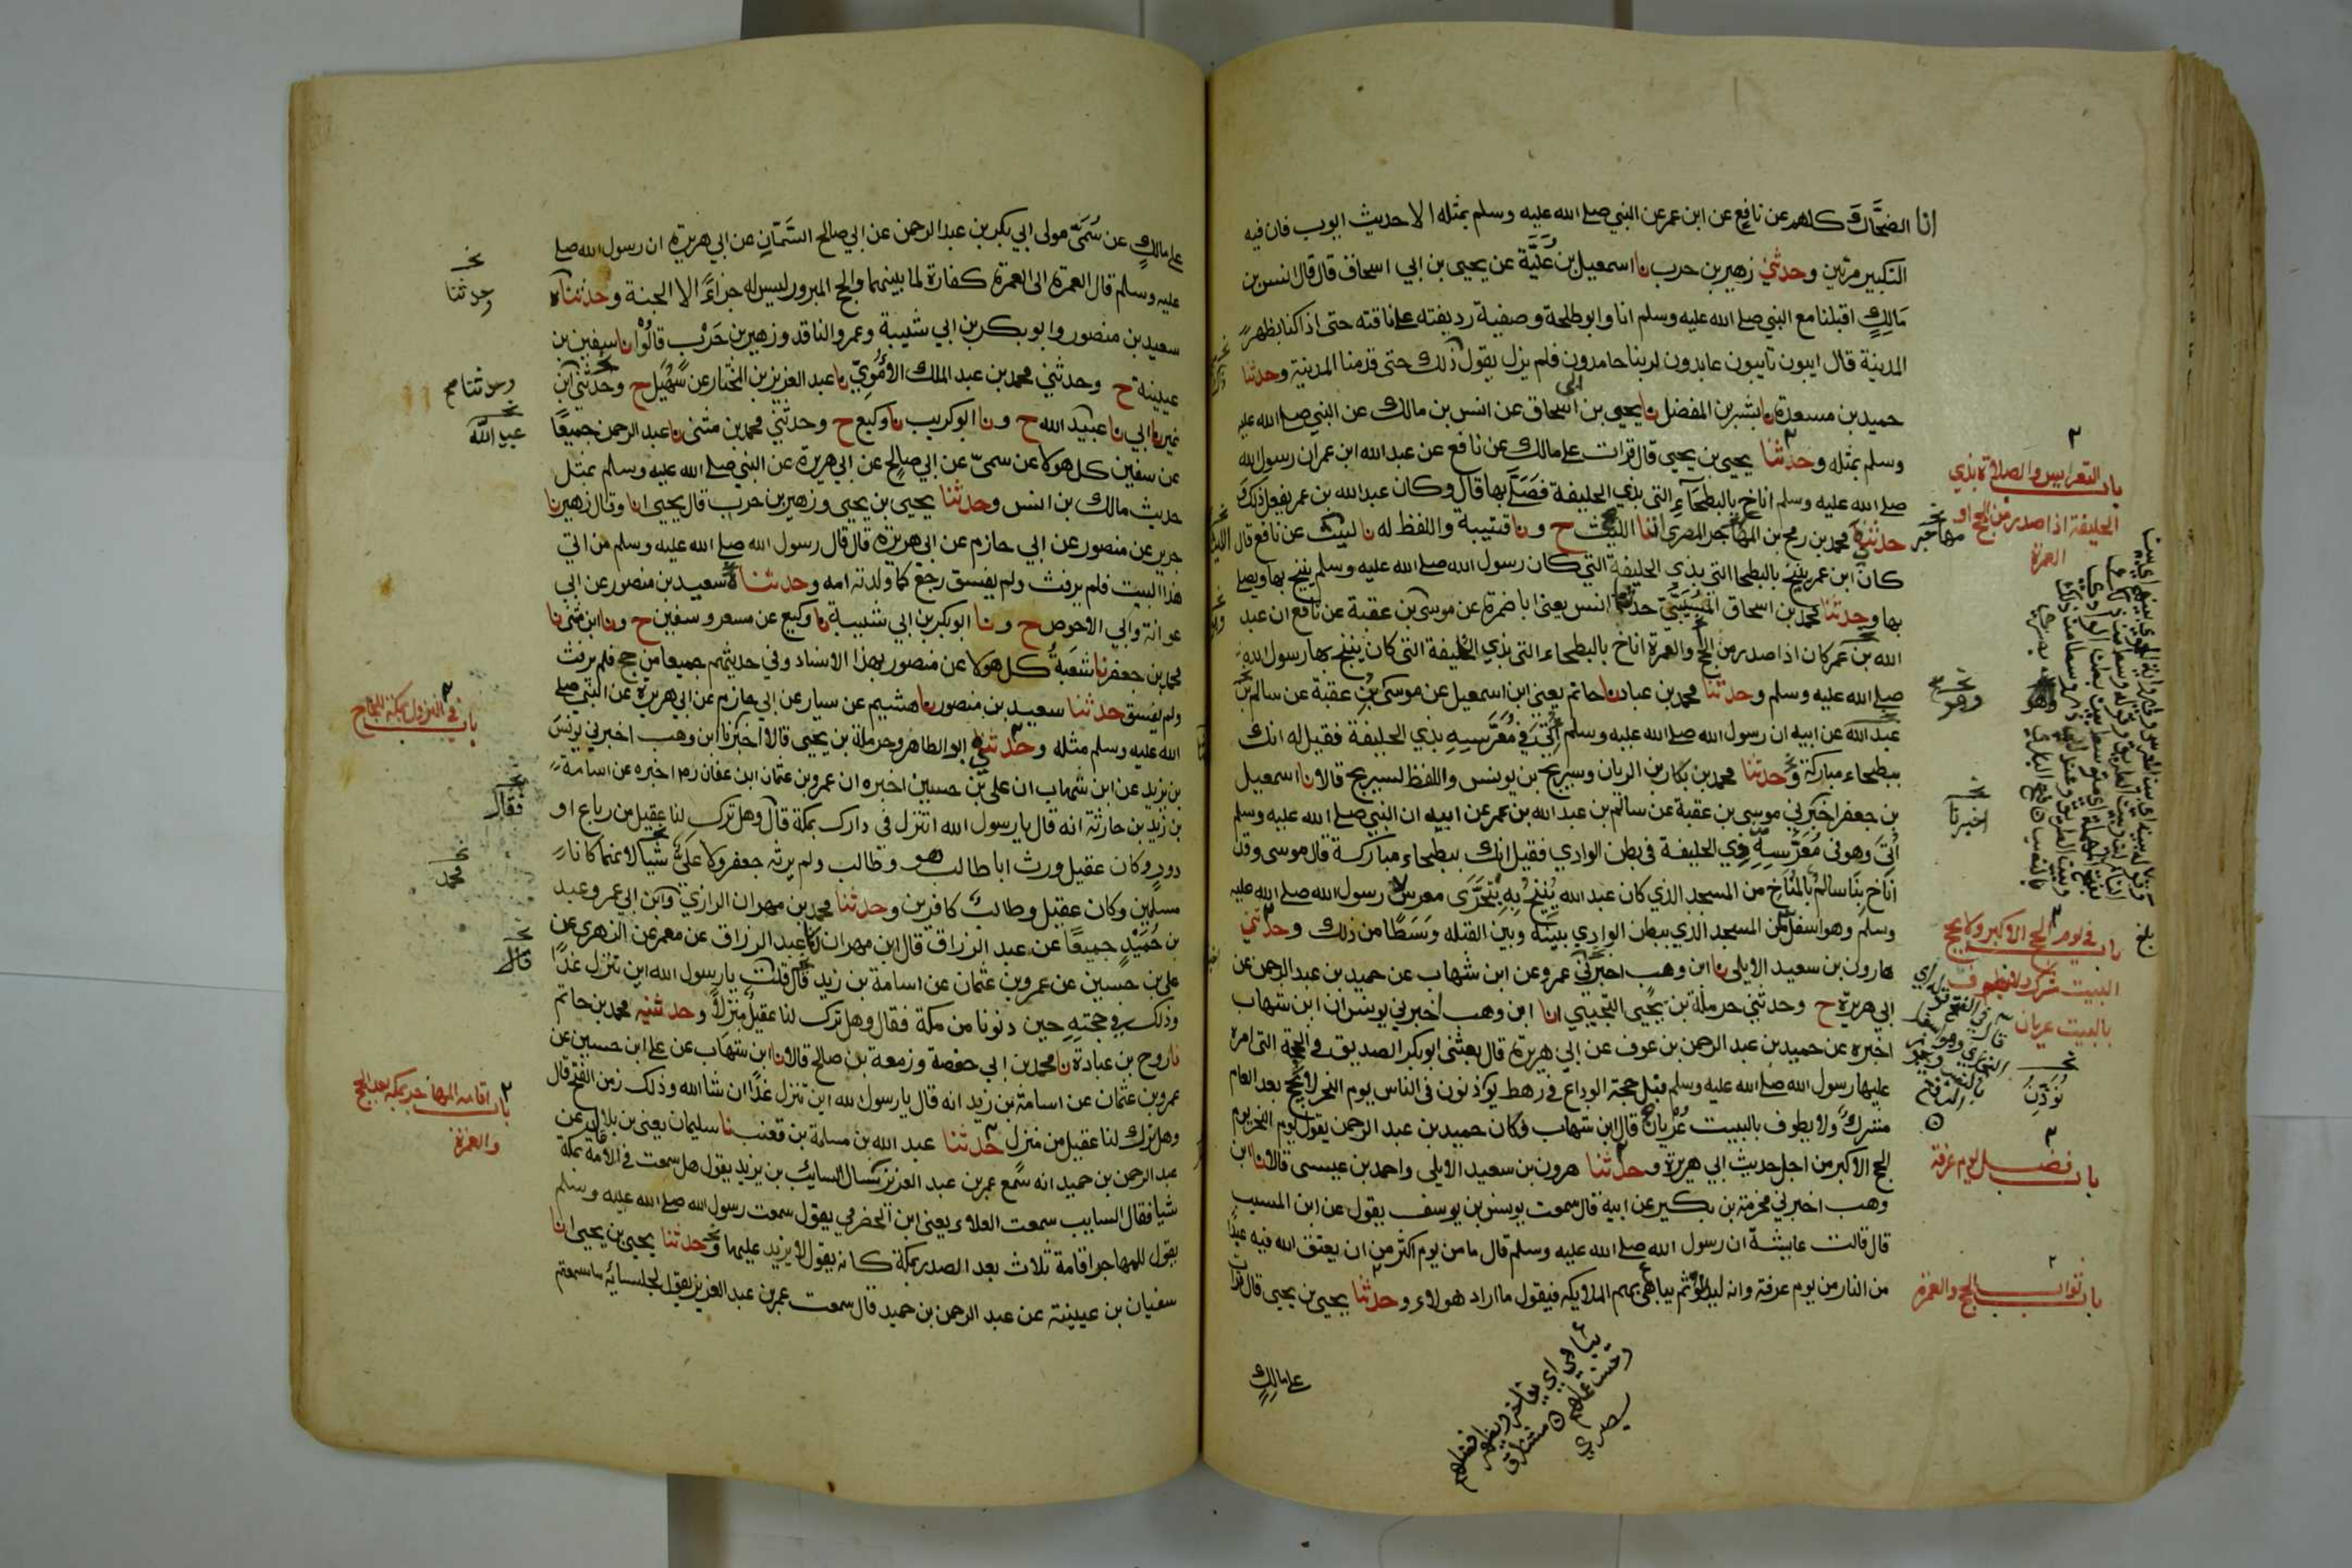 انا الضحاك كلهم عن نافع عن ابن عمر عن النبي صلے الله عليه وسلم بمثله الا حديث ايوب فان فيه
التكبير مرتين وحدثني زهير بن حرب نا اسمعيل بن علية عن يحيى بن ابي اسحاق قال قال انس بن
مالك اقبلنا مع النبي صلے الله عليه وسلم انا وابو طلحة وصفية رديفته علے ناقته حتى اذا كنا بظهر
المدينة قال ايبون تايبون عابدون لربنا حامدون فلم يزل يقول ذلك حتى قدمنا المدينة وحدثنا
حميد بن مسعدة نا بشر بن المفضل نا يحيى بن ابي اسحاق عن انس بن مالك عن النبي صلے الله عليه
وسلم بمثله وحدثنا يحيى بن يحيى قال قرات علے مالك عن نافع عن عبد الله ابن عمر ان رسول الله
صلے الله عليه وسلم اناخ بالبطحاء التي بذي الحليفة فصلے بها قال وكان عبد الله بن عمر يفعل ذلك و
حدثني محمد بن رمح بن المهاجر المصري انا الليث ح ونا قتيبة واللفظ له نا ليث عن نافع قال
كان ابن عمر ينيخ بالبطحا التي بذي الحليفة التي كان رسول الله صلے الله عليه وسلم ينيخ بها ويصلے
بها وحدثنا محمد بن اسحاق المسيبي حدثنا انس يعنى ابا ضمرة عن موسى بن عقبة عن نافع ان عبد
الله بن عمر كان اذا صدر من الحج والعمرة اناخ بالبطحاء التي بذي الحليفة التي كان ينيخ بها رسول الله
صلے الله عليه وسلم وحدثنا محمد بن عباد نا حاتم يعنى ابن اسمعيل عن موسى بن عقبة عن سالم بن
عبد الله عن ابيه ان رسول الله صلے الله عليه وسلم أتي في معرسه بذي الحليفة فقيل له انك
ببطحاء مباركة وحدثنا محمد بن بكار بن الريان وسريج بن يونس واللفظ لسريج قالا نا اسمعيل
بن جعفر اخبرني موسى بن عقبة عن سالم بن عبد الله بن عمر عن ابيه ان النبي صلے الله عليه وسلم
أتي وهو في معرسه بذي الحليفة في بطن الوادي فقيل انك ببطحاء مباركة قال موسى وقد
اناخ بنا سالم بالمناخ من المسجد الذي كان عبد الله ينيخ به يتحرى معرس رسول الله صلے الله عليه
وسلم وهو اسفل من المسجد الذي ببطن الوادي بينه وبين القبله وسطا من ذلك وحدثني
هارون بن سعيد الايلى نا ابن وهب اخبرني عمرو عن ابن شهاب عن حميد بن عبد الرحمن عن
ابي هريرة ح وحدثني حرملة بن يحيى التجيبي انا ابن وهب اخبرني يونس ان ابن شهاب
اخبره عن حميد بن عبد الرحمن بن عوف عن ابي هريرة قال بعثنى ابو بكر الصديق في الحجة التي امره
عليها رسول الله صلے الله عليه وسلم قبل حجة الوداع في رهط يوذنون في الناس يوم النحر لا يحج بعد العام
مشرك ولا يطوف بالبيت عريان قال ابن شهاب فكان حميد بن عبد الرحمن يقول يوم النحر يوم
الحج الاكبر من اجل حديث ابي هريرة وحدثنا هرون بن سعيد الايلى واحمد بن عيسى قالا نا ابن
وهب اخبرني مخرمة بن بكير عن ابيه قال سمعت يونس بن يوسف يقول عن ابن المسيب
قال قالت عايشة ان رسول الله صلے الله عليه وسلم قال ما من يوم اكثر من ان يعتق الله فيه عبدا
من النار من يوم عرفة وانه ليدنو ثم يباهى بهم الملايكه فيقول ما اراد هولاء وحدثنا يحيى بن يحيى قال قرات
علے مالك
باب التعريس والصلاة بذي
الحليفة اذا صدر من الحج او
العمرة
وهو
اخبرنا
باب في يوم الحج الاكبر ولا يحج
البيت مشرك ولا يطوف
بالبيت عريان
يُؤذِّن
باب فضل يوم عرفة
باب ثواب الحج والعمرة
علے مالك عن سمي مولى ابي بكر بن عبد الرحمن عن ابي صالح السمان عن ابي هريرة ان رسول الله صلے
عليه وسلم قال العمرة الى العمرة كفارة لما بينهما والحج المبرور ليس له جزاء الا الجنة وحدثناه
سعيد بن منصور وابو بكر بن ابي شيبة وعمرو الناقد وزهير بن حرب قالوا نا سفين بن
عيينة ح وحدثني محمد بن عبد الملك الاموي نا عبد العزيز بن المختار عن سهيل ح وحدثني ابن
نمير نا ابي نا عبيد الله ح ونا ابو كريب نا وكيع ح وحدثني محمد بن مثنى نا عبد الرحمن جميعا
عن سفين كل هولا عن سمي عن ابي صالح عن ابي هريرة عن النبي صلے الله عليه وسلم بمثل
حديث مالك بن انس وحدثنا يحيى بن يحيى وزهير بن حرب قال يحيى انا وقال زهير نا
جرير عن منصور عن ابي حازم عن ابي هريرة قال قال رسول الله صلے الله عليه وسلم من اتى
هذا البيت فلم يرفث ولم يفسق رجع كما ولدته امه وحدثناه سعيد بن منصور عن ابي
عوانة وابي الاحوص ح ونا ابو بكر بن ابي شيبة نا وكيع عن مسعر وسفين ح ونا ابن مثنى نا
محمد بن جعفر نا شعبة كل هولا عن منصور بهذا الاسناد وفي حديثهم جميعا من حج فلم يرفث
ولم يفسق حدثنا سعيد بن منصور نا هشيم عن سيار عن ابي حازم عن ابي هريرة عن النبي صلے
الله عليه وسلم مثله وحدثني ابو الطاهر وحرملة بن يحيى قالا اخبرنا ابن وهب اخبرني يونس
بن يزيد عن ابن شهاب ان علي بن حسين اخبره ان عمرو بن عثمان ابن عفان اخبره عن اسامة
بن زيد بن حارثة انه قال يا رسول الله اتنزل في دارك بمكة قال وهل ترك لنا عقيل من رباع او
دور وكان عقيل ورث ابا طالب هو وطالب ولم يرثه جعفر ولا علي شيا لانهما كانا
مسلمين وكان عقيل وطالب كافرين وحدثنا محمد بن مهران الرازي وابن ابي عمر وعبد
بن حميد جميعا عن عبد الرزاق قال ابن مهران نا عبد الرزاق عن معمر عن الزهري عن
علي بن حسين عن عمرو بن عثمان عن اسامة بن زيد قال قلت يا رسول الله اين تنزل غدا
وذلك في حجته حين دنونا من مكة فقال وهل ترك لنا عقيل منزلا وحدثنيه محمد بن حاتم
نا روح بن عبادة نا محمد بن ابي حفصة وزمعة بن صالح قالا نا ابن شهاب عن علے ابن حسين عن
عمرو بن عثمان عن اسامة بن زيد انه قال يا رسول الله اين تنزل غدا ان شا الله وذلك زمن الفتح قال
وهل ترك لنا عقيل من منزل حدثنا عبد الله بن مسلمة بن قعنب نا سليمان يعنى بن بلال عن
عبد الرحمن بن حميد انه سمع عمر بن عبد العزيز يسال السايب بن يزيد يقول هل سمعت في الاقامة بمكة
شيا فقال السايب سمعت العلاء يعنى ابن الحضرمي يقول سمعت رسول الله صلے الله عليه وسلم
يقول للمهاجر اقامة ثلاث بعد الصدر بمكة كانه يقول لا يزيد عليها وحدثنا يحيى بن يحيى انا
سفيان بن عيينة عن عبد الرحمن بن حميد قال سمعت عمر بن عبد العزيز يقول لجلسائه ما سمعتم
وحدثنا
عبد الله
باب في النزول بمكة للحاج
فقال
محمد
قال
باب اقامة المهاجر بمكة بعد الحج
والعمرة